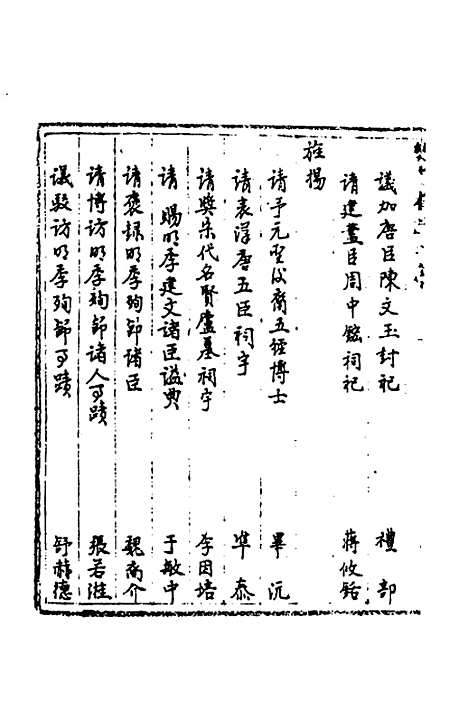 議加唐臣陳文玉封祀 禮部
請建藎臣周中鋐祠祀 蔣攸銛
旌揚
請予元聖後裔五經博士 畢沅
請表漢唐五臣祠宇 準泰
請獎朱代名賢廬墓祠宇 李因培
請賜明季建文諸臣諡典 于敏中
請褒録明季殉節諸臣 魏裔介
請博訪明季殉節諸人事蹟 張若溎
議駁訪明季殉節事蹟 舒赫德